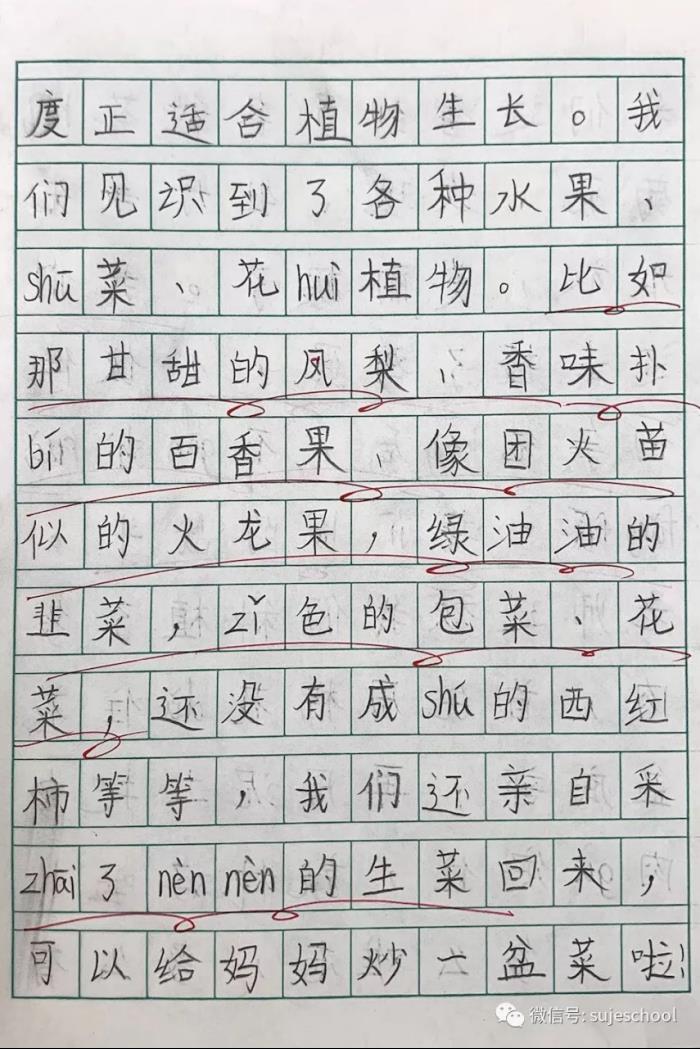 度正适合植物生长。我
们见识到了各种水果、
shū菜、花huì植物。比如
那甘甜的凤梨、香味扑
bí的百香果、像团火苗
似的火龙果，绿油油的
韭菜，zǐ色的包菜、花
菜，还没有成shú的西红
柿等等，我们还亲自采
zhāi了nèn nèn的生菜回来，
可以给妈妈炒一盆菜啦！
微信号: sujeschool